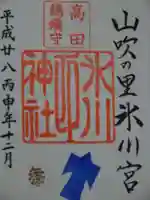 山吹の里氷川宮
高田
鎮守
氷川
神社
平成廿八丙申年十二月